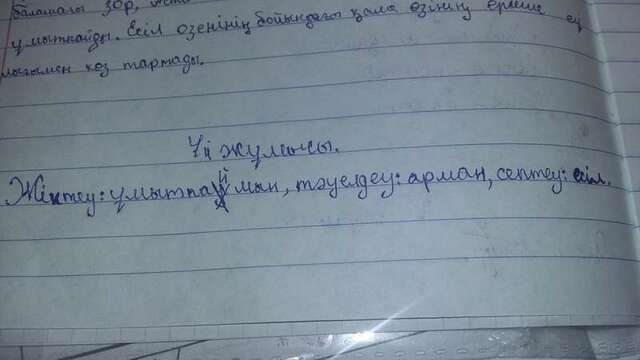 баламасы зор,
ұмытпайды. Есіл өзенінің бойындағы қала өзінің ерекше
көз тартады.
Үй жұмысы.
Жіктеу: ұмытпаймын, тәуелдеу: арман, септеу: есіл.